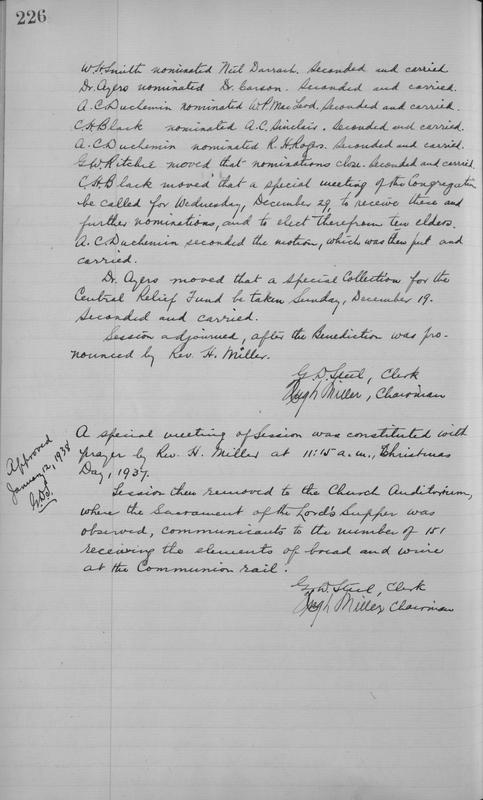 226
W. H. Smith nominated Neil Darrach. Seconded and carried.
Dr. Ayers nominated Dr. Carson. Seconded and carried.
A. C. Duchemin nominated W. P. MacLeod, Seconded and carried.
C. H. Black nominated A. C. Sinclair. Seconded and carried.
A. C. Duchemin nominated R. H. Rogers. Seconded and carried.
G. W. Ritchie moved that nominations close. Seconded and carried.
C. H. Black moved that a special meeting of the Congregation
be called for Wednesday, December 29, to receive these and
further nominations, and to elect therefrom ten elders.
A. C. Duchemin seconded the motion, which was then put and
carried.
Dr. Ayers moved that a Special Collection for the
Central Relief Fund be taken Sunday, December 19.
Seconded and carried.
Session adjourned, after the Benediction was pro-
nounced by Rev. H. Miller.
G. D. Steel, Clerk
Hugh Miller, Chairman
Approved
January 12, 1938
G.D.S.
A special meeting of Session was constituted with
prayer by Rev. H. Miller at 11:15 a.m., Christmas
Day, 1937.
Session then removed to the Church Auditorium,
where the Sacrament of the Lord's Supper was
observed, communicants to the number of 151
receiving the elements of bread and wine
at the Communion rail.
G. D. Steel, Clerk
Hugh Miller, Chairman